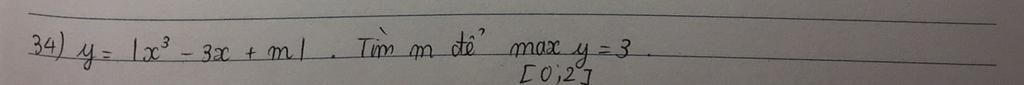 34) y = |x³ - 3x + m| . Tìm m để max y = 3.
[0;2]